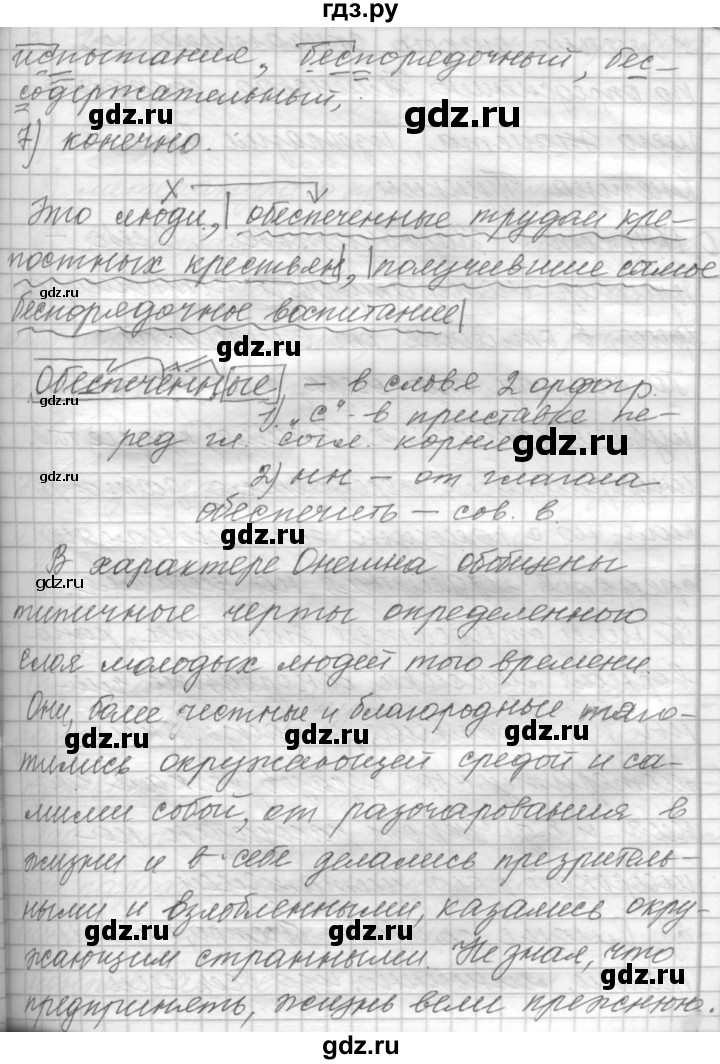 гдз.ру
испытания, беспорядочный, бес-
содержательный,
gdz.ru gdz.ru
7) конечно.
х
Это люди, обеспеченные трудам кре-
постных крестьян, получившие самое
gdz.ru
беспорядочное воспитание
gdz.ru
Обеспеченные – в слове 2 орфогр.
gdz.ru
1) „с"- в приставке пе-
ред гл. согл. корне
gdz.ru
gdz.ru
2) нн – от глагола
обеспечить – сов. в.
gdz.ru
В характере Онегина обобщены
gdz.ru
типичные черты определенного
слоя молодых людей того времени.
Они, более честные и благородные тяго-
gdz.ru gdz.ru gdz.ru
тились окружающей средой и са-
мими собой, от разочарования в
жизни и в себе делались презритель-
ными и взлобленными, казались окру-
gdz.ru gdz.ru
жающим странными. Не зная, что
gdz.ru
предпринять, жизнь вели прежнюю.
gdz.ru